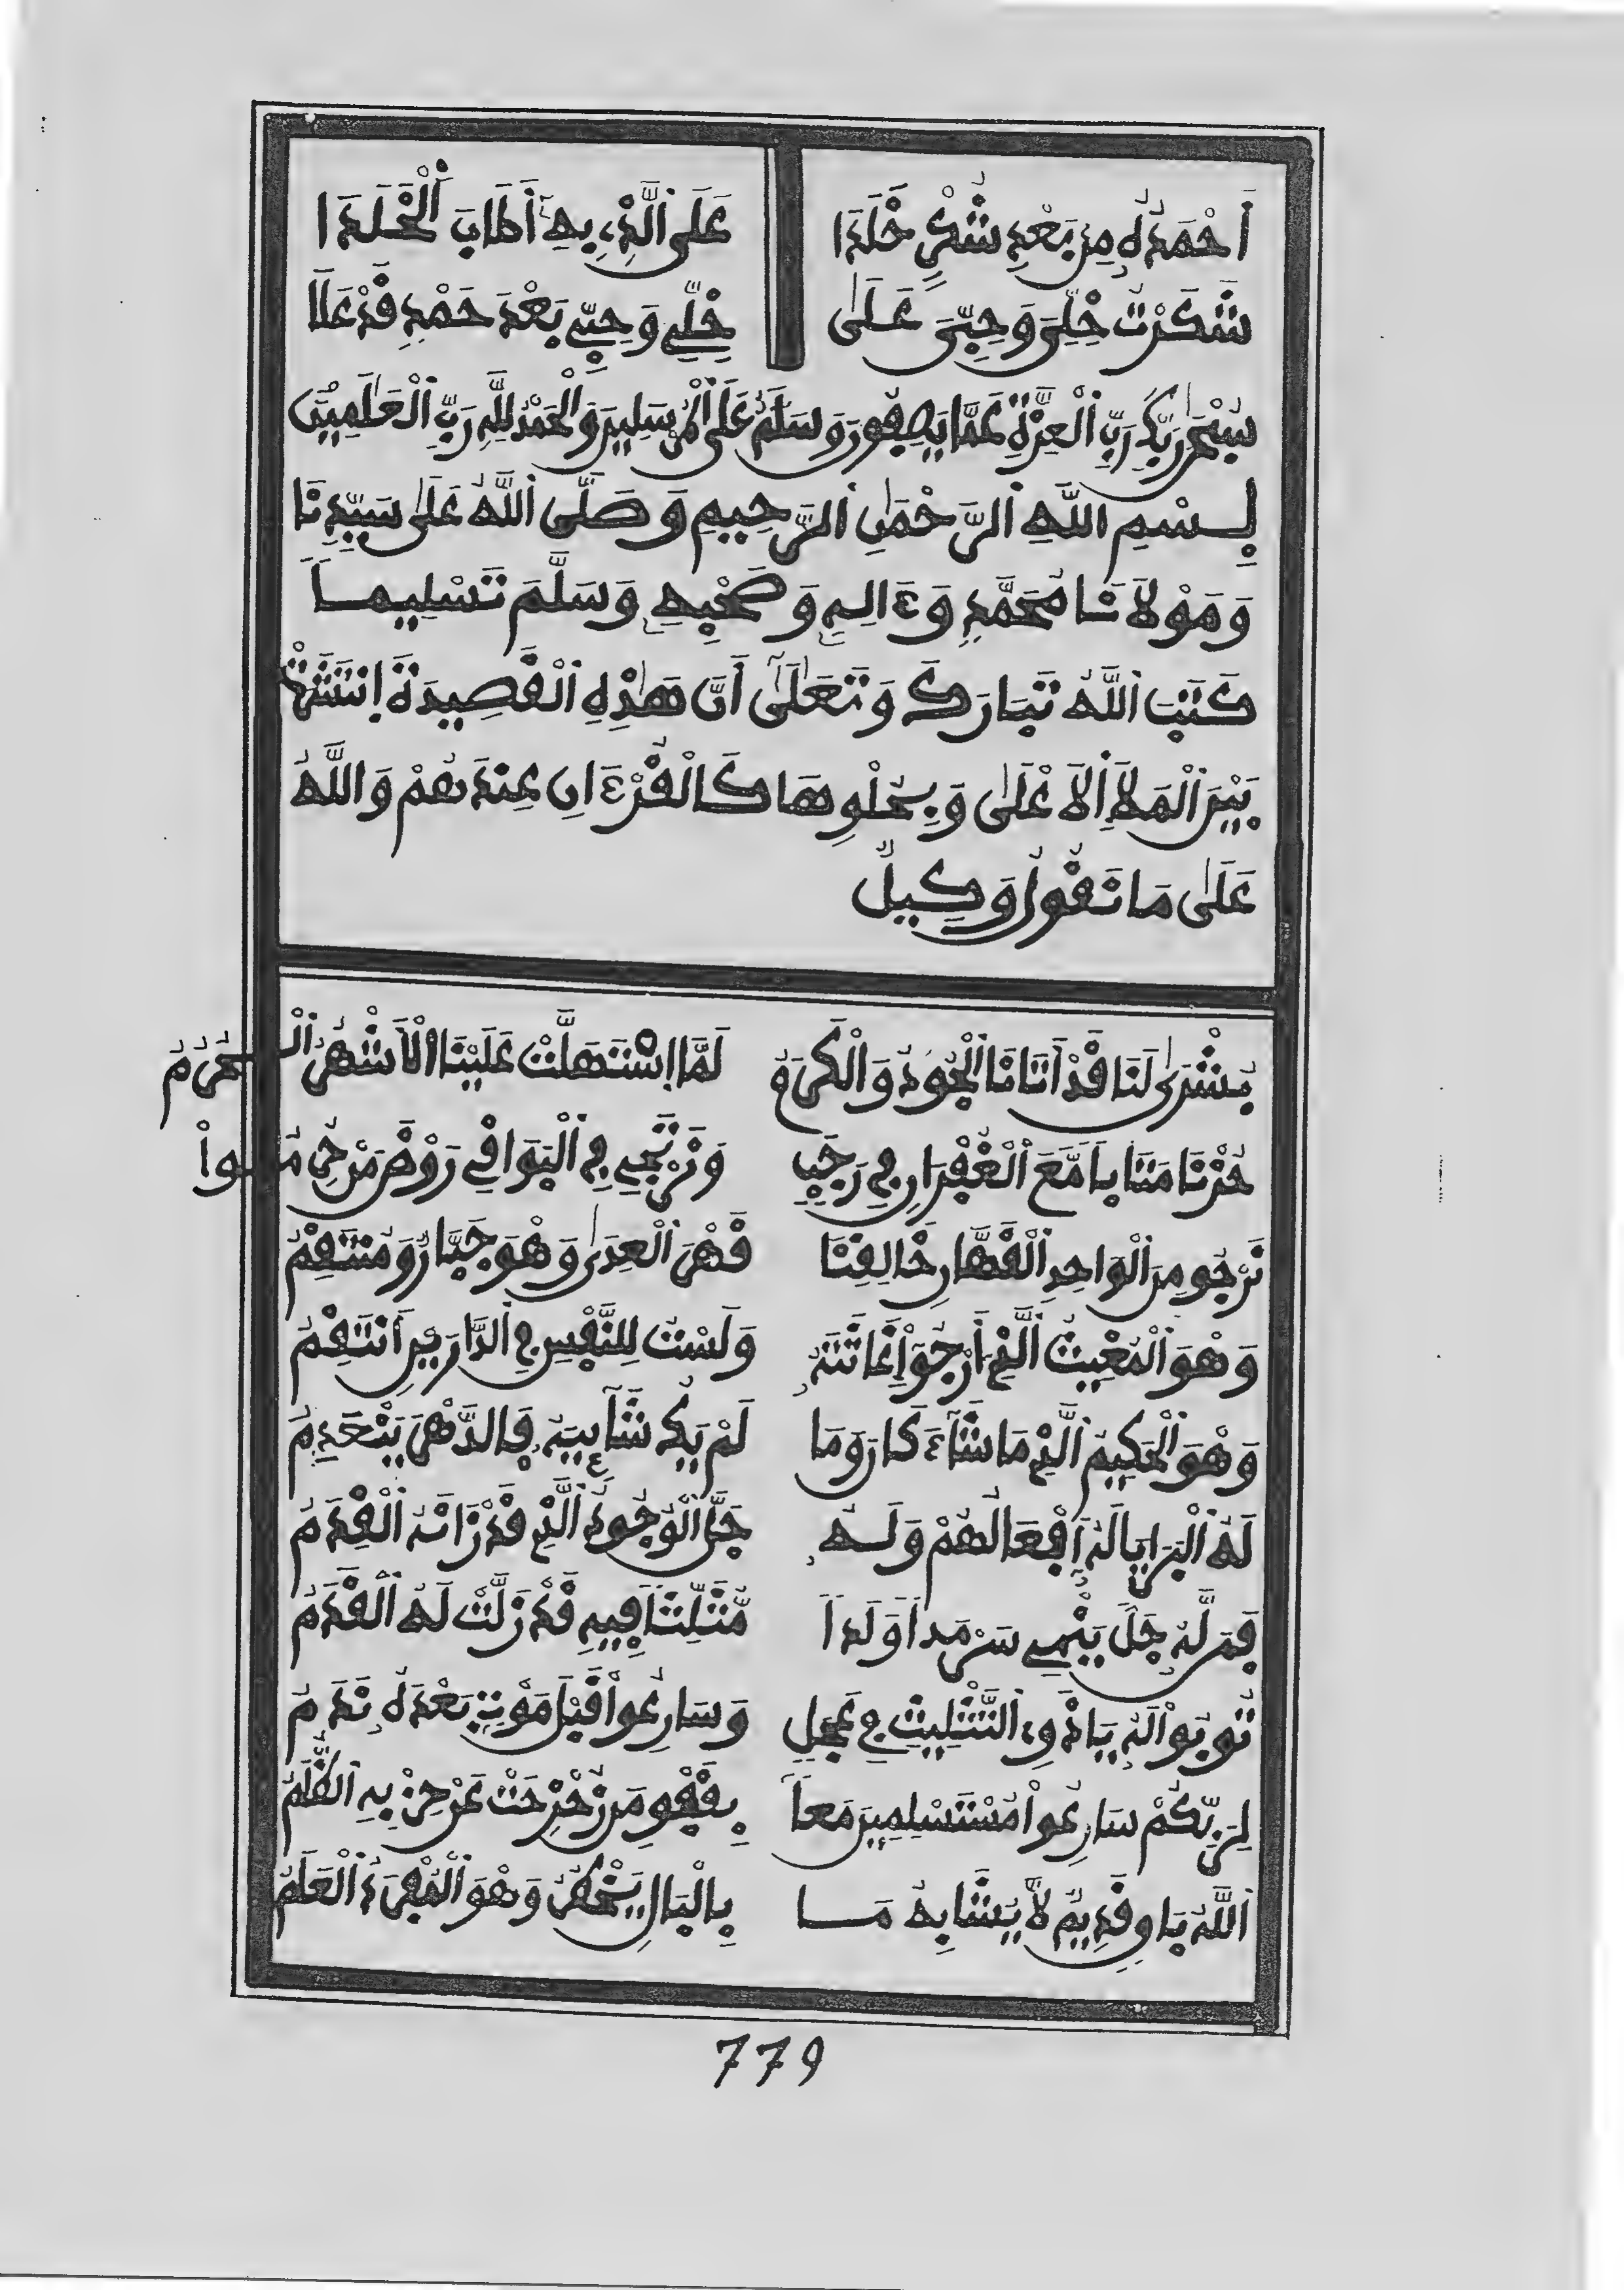 أَحْمَدُهُ مِن بَعْدِ شُكْرٍ خَلَّدَا عَلَى الَّذِي بِهِ أَطَابَ الْخَلَدَا
شَكَرْتُ خِلِّيَ وَحِبِّيَ عَلَى خِلِّي وَحِبِّي بَعْدَ حَمْدٍ قَدْ عَلَا
سُبْحَٰنَ رَبِّكَ رَبِّ الْعِزَّةِ عَمَّا يَصِفُونَ وَسَلَٰمٌ عَلَى الْمُرْسَلِينَ وَالْحَمْدُ لِلَّهِ رَبِّ الْعَٰلَمِينَ
بِسْمِ اللَّهِ الرَّحْمَٰنِ الرَّحِيمِ وَصَلَّى اللَّهُ عَلَىٰ سَيِّدِنَا
وَمَوْلَانَا مُحَمَّدٍ وَءَالِهِ وَصَحْبِهِ وَسَلَّمَ تَسْلِيمًا
كَتَبَ اللَّهُ تَبَارَكَ وَتَعَٰلَىٰ أَنَّ هَٰذِهِ الْقَصِيدَةَ اِنْتَشَرَتْ
بَيْنَ الْمَلَإِ الْأَعْلَىٰ وَيَتْلُونَهَا كَالْقُرْءَانِ عِنْدَهُمْ وَاللَّهُ
عَلَىٰ مَا نَقُولُ وَكِيلٌ
بُشْرَىٰ لَنَا قَدْ أَتَانَا الْجُودُ وَالْكَرَمُ لَمَّا اسْتَهَلَّتْ عَلَيْنَا الْأَشْهُرُ الْحُرُمُ
حُزْنَا مَتَابًا مَّعَ الْغُفْرَانِ فِي رَجَبٍ وَنَرْتَجِي فِي الْبَوَاقِي رَوْضَ مَنْ حُرِمُوا
نَرْجُو مِنَ الْوَاحِدِ الْقَهَّارِ خَالِقِنَا قَهْرَ الْعِدَىٰ وَهْوَ جَبَّارٌ وَمُنْتَقِمُ
وَهْوَ الْمُغِيثُ الَّذِي أَرْجُو إِغَاثَتَهُ وَلَسْتُ لِلنَّفْسِ فِي الدَّارَيْنِ أَنْتَقِمُ
وَهْوَ الْحَكِيمُ الَّذِي مَا شَاءَ كَانَ وَمَا لَمْ يَكُ شَائِيَهُ فَالدَّهْرَ يَنْعَدِمُ
لَهُ الْبَرَايَا لَهُ أَفْعَالُهُمْ وَلَهُ جَلَّ الْوُجُودُ الَّذِي قَدْ زَانَهُ الْقِدَمُ
فَمَن لَّهُ جَلَّ يَنْمِي سَرْمَدًا وَلَدًا مُّثَلِّثًا فِيهِ قَدْ زَلَّتْ لَهُ الْقَدَمُ
تُوبُوا لَهُ يَا ذَوِي التَّثْلِيثِ فِي عَجَلٍ وَسَارِعُوا قَبْلَ مَوْتٍ بَعْدَهُ نَدَمُ
لِرَبِّكُمْ سَارِعُوا مُسْتَسْلِمِينَ مَعًا بِفَقْوِ مَن زُحْزِحَتْ عَنْ حِزْبِهِ الظُّلَمُ
اَللَّهُ بَاقٍ قَدِيمٌ لَّا يُشَابِهُ مَا بِالْبَالِ يَخْطُرُ وَهْوَ الْمُفْرَدُ الْعَلَمُ
779